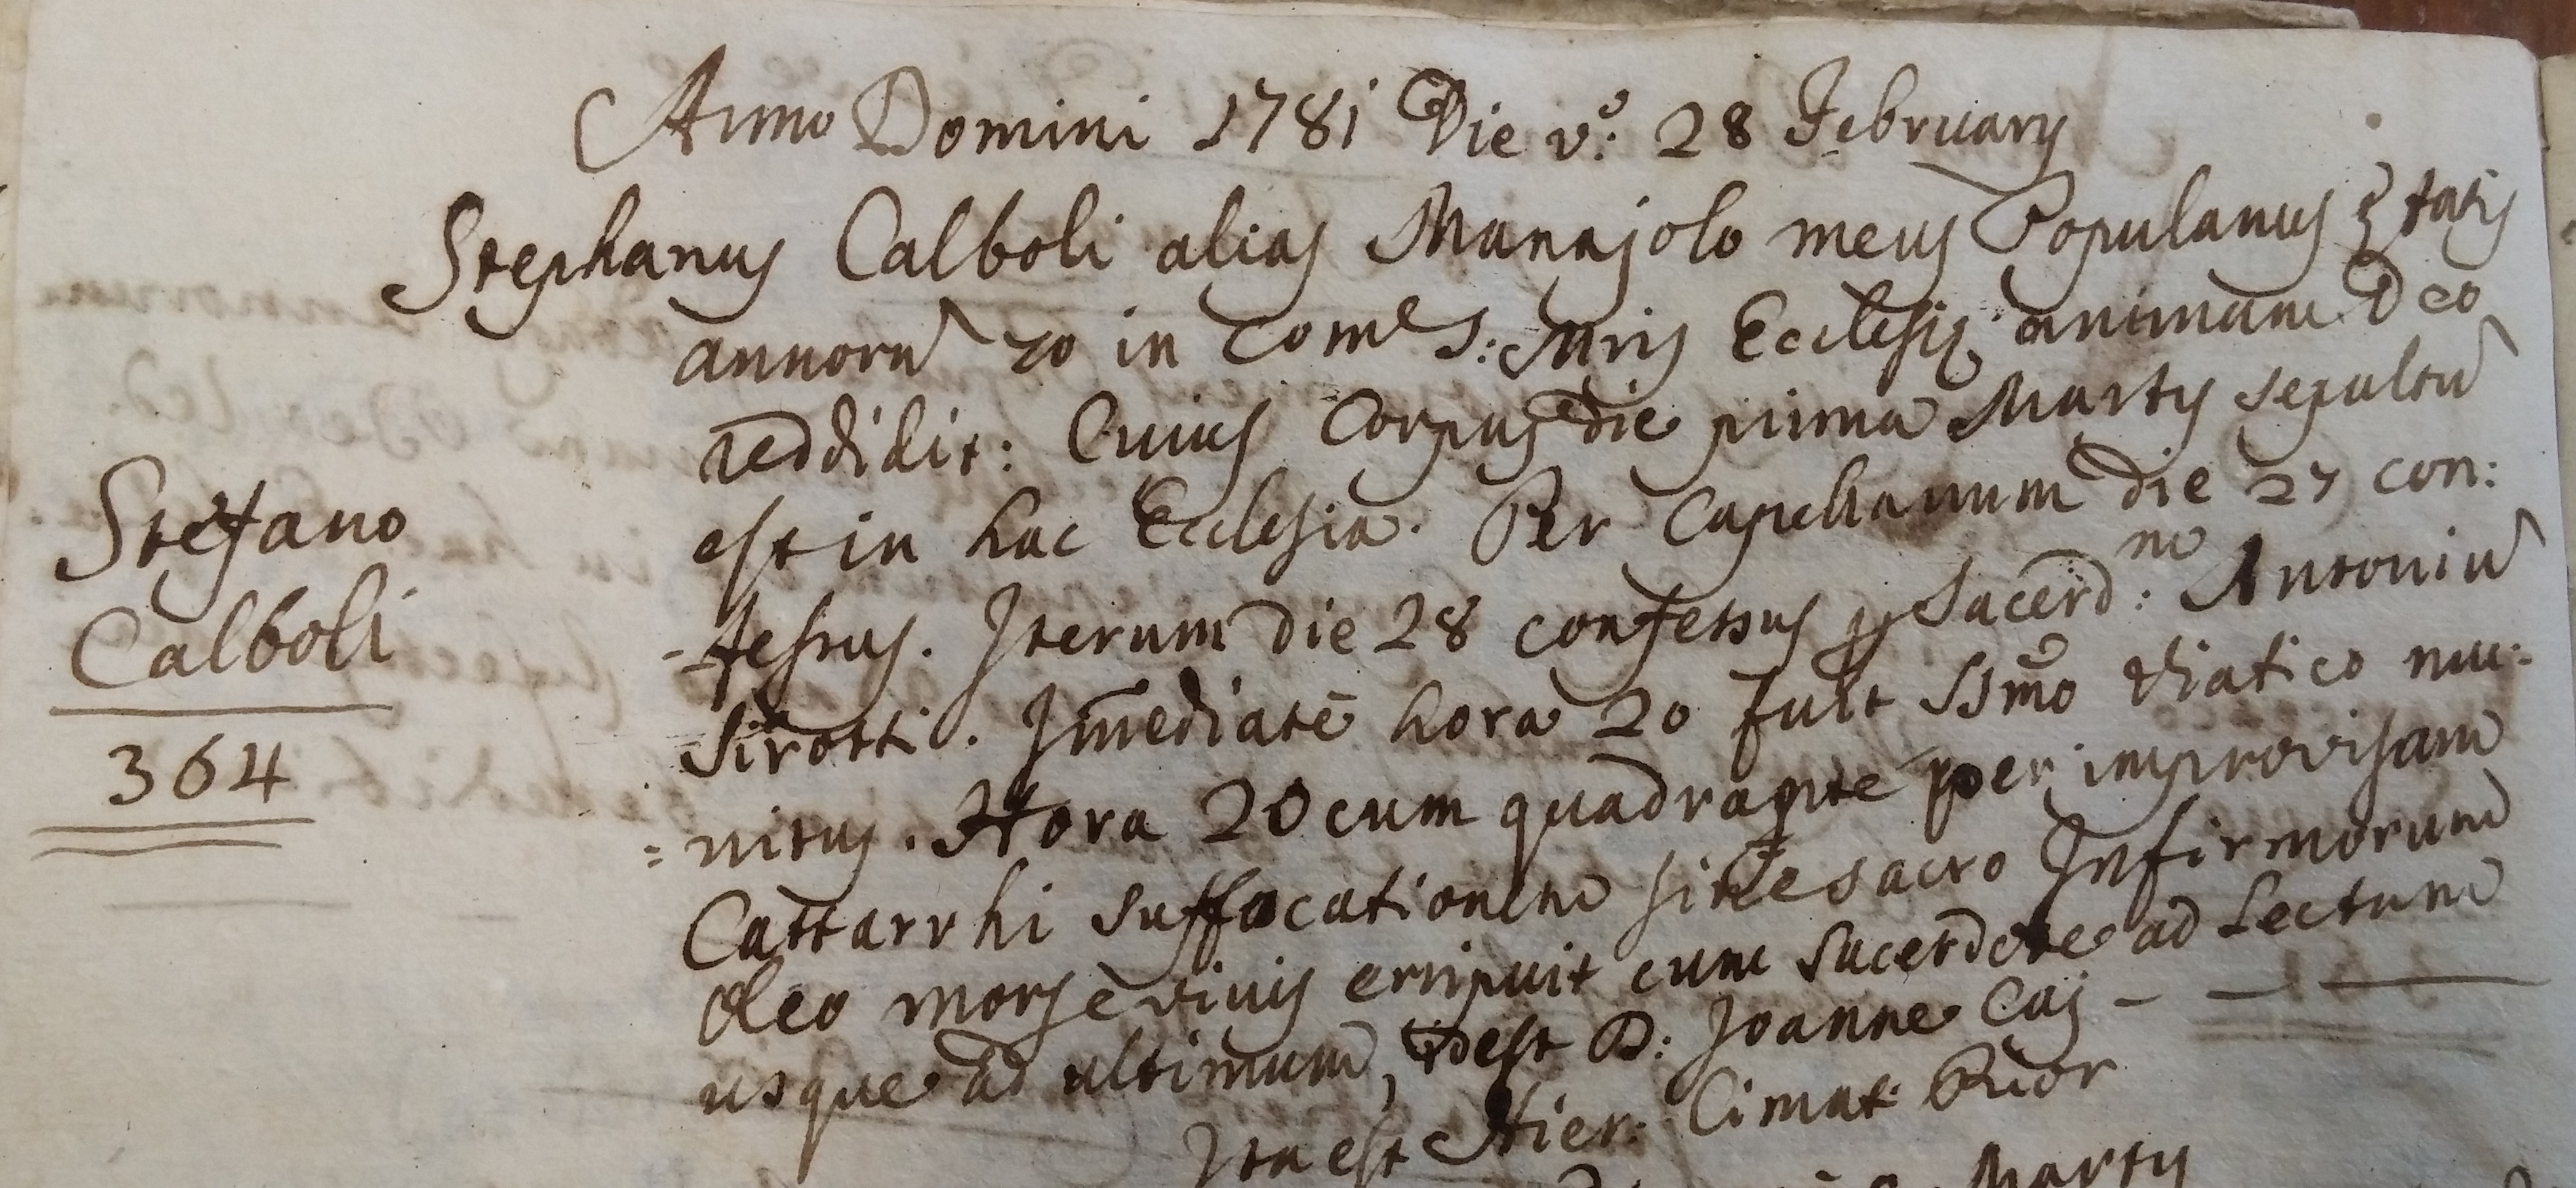 Anno Domini 1781 Die vº: 28 February
Stephanus Calboli alias Manajolo meus Populanus Ętatis
annorũ 70 in Comˡᵉ S: Mris Ecclesię animam Deo
reddidit: Cuius Corpus die prima Martij sepultũ
est in hac Ecclesia. Per Capellanum die 27 con:
-fessus. Iterum die 28 confessus p Sacerdᵐ: Antoniũ
Sirotti. Im̃ediatè hora 20 fuit SSm̃o Viatico mu:
Stefano
Calboli
364
=nitus. Hora 20 cum quadrante per improvisam
Cattarrhi suffocationem sine sacro Infirmorum
Oleo mors è vivis erripuit cum Sacerdote ad Lectum
usque ad ultimum, idest D: Joanne Caj - - —
Ita est Hier: Cimat: Prior
Martij